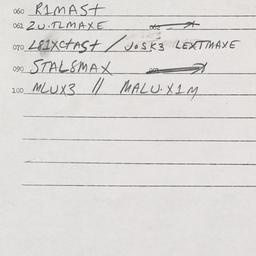 060 R1MASt
061 2U.TLMAXE
070 L81XCtASt / JOSK3 LEXTMAXE
090 STAL8MAX
100 MLUX3 // MALU.X1M